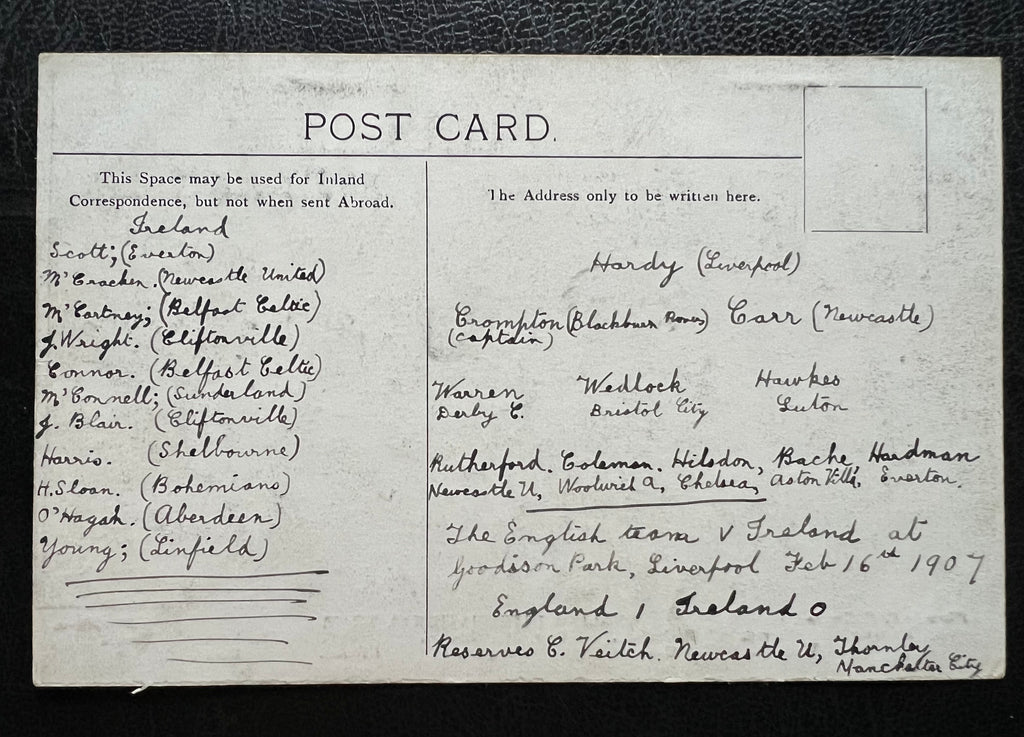 POST CARD.
This Space may be used for Inland
Correspondence, but not when sent Abroad.
Ireland
Scott; (Everton)
McCracken. (Newcastle United)
McCartney; (Belfast Celtic)
J. Wright. (Cliftonville)
Connor. (Belfast Celtic)
McConnell; (Sunderland)
J. Blair. (Cliftonville)
Harris. (Shelbourne)
H. Sloan. (Bohemians)
O'Hagan. (Aberdeen)
Young; (Linfield)
The Address only to be written here.
Hardy (Liverpool)
Crompton (Blackburn Rovers) Carr (Newcastle)
(Captain)
Warren Wedlock Hawkes
Derby C. Bristol City Luton
Rutherford. Coleman. Hilsdon, Bache, Hardman
Newcastle U, Woolwich A, Chelsea, Aston Villa, Everton.
The English team v Ireland at
Goodison Park, Liverpool Feb 16th 1907
England 1 Ireland 0
Reserves C. Veitch. Newcastle U, Thornley
Manchester City